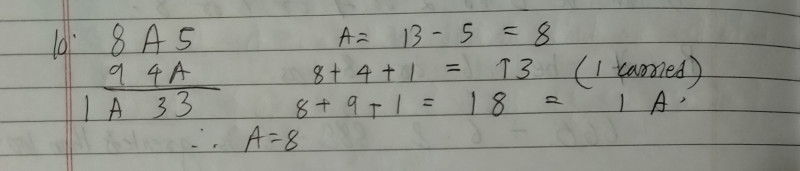 10. 8 A 5 A = 13 - 5 = 8
9 4 A 8 + 4 + 1 = 13 (1 carried)
1 A 3 3 8 + 9 + 1 = 18 = 1 A.
∴ A = 8